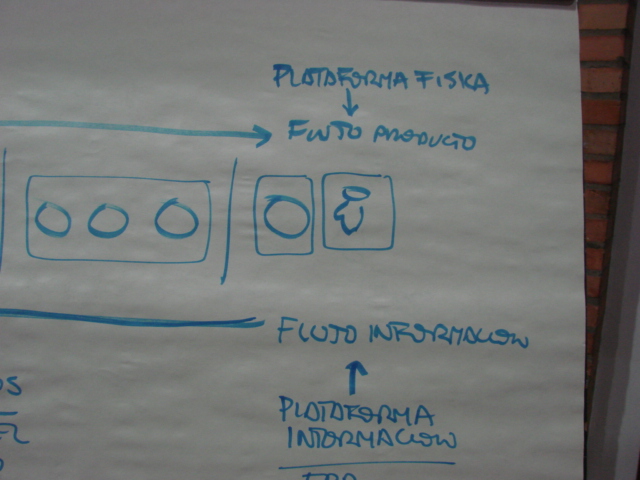 PLATAFORMA FISIKA
FLUJO PRODUCTO
FLUJO INFORMACION
PLATAFORMA
INFORMACION
OS